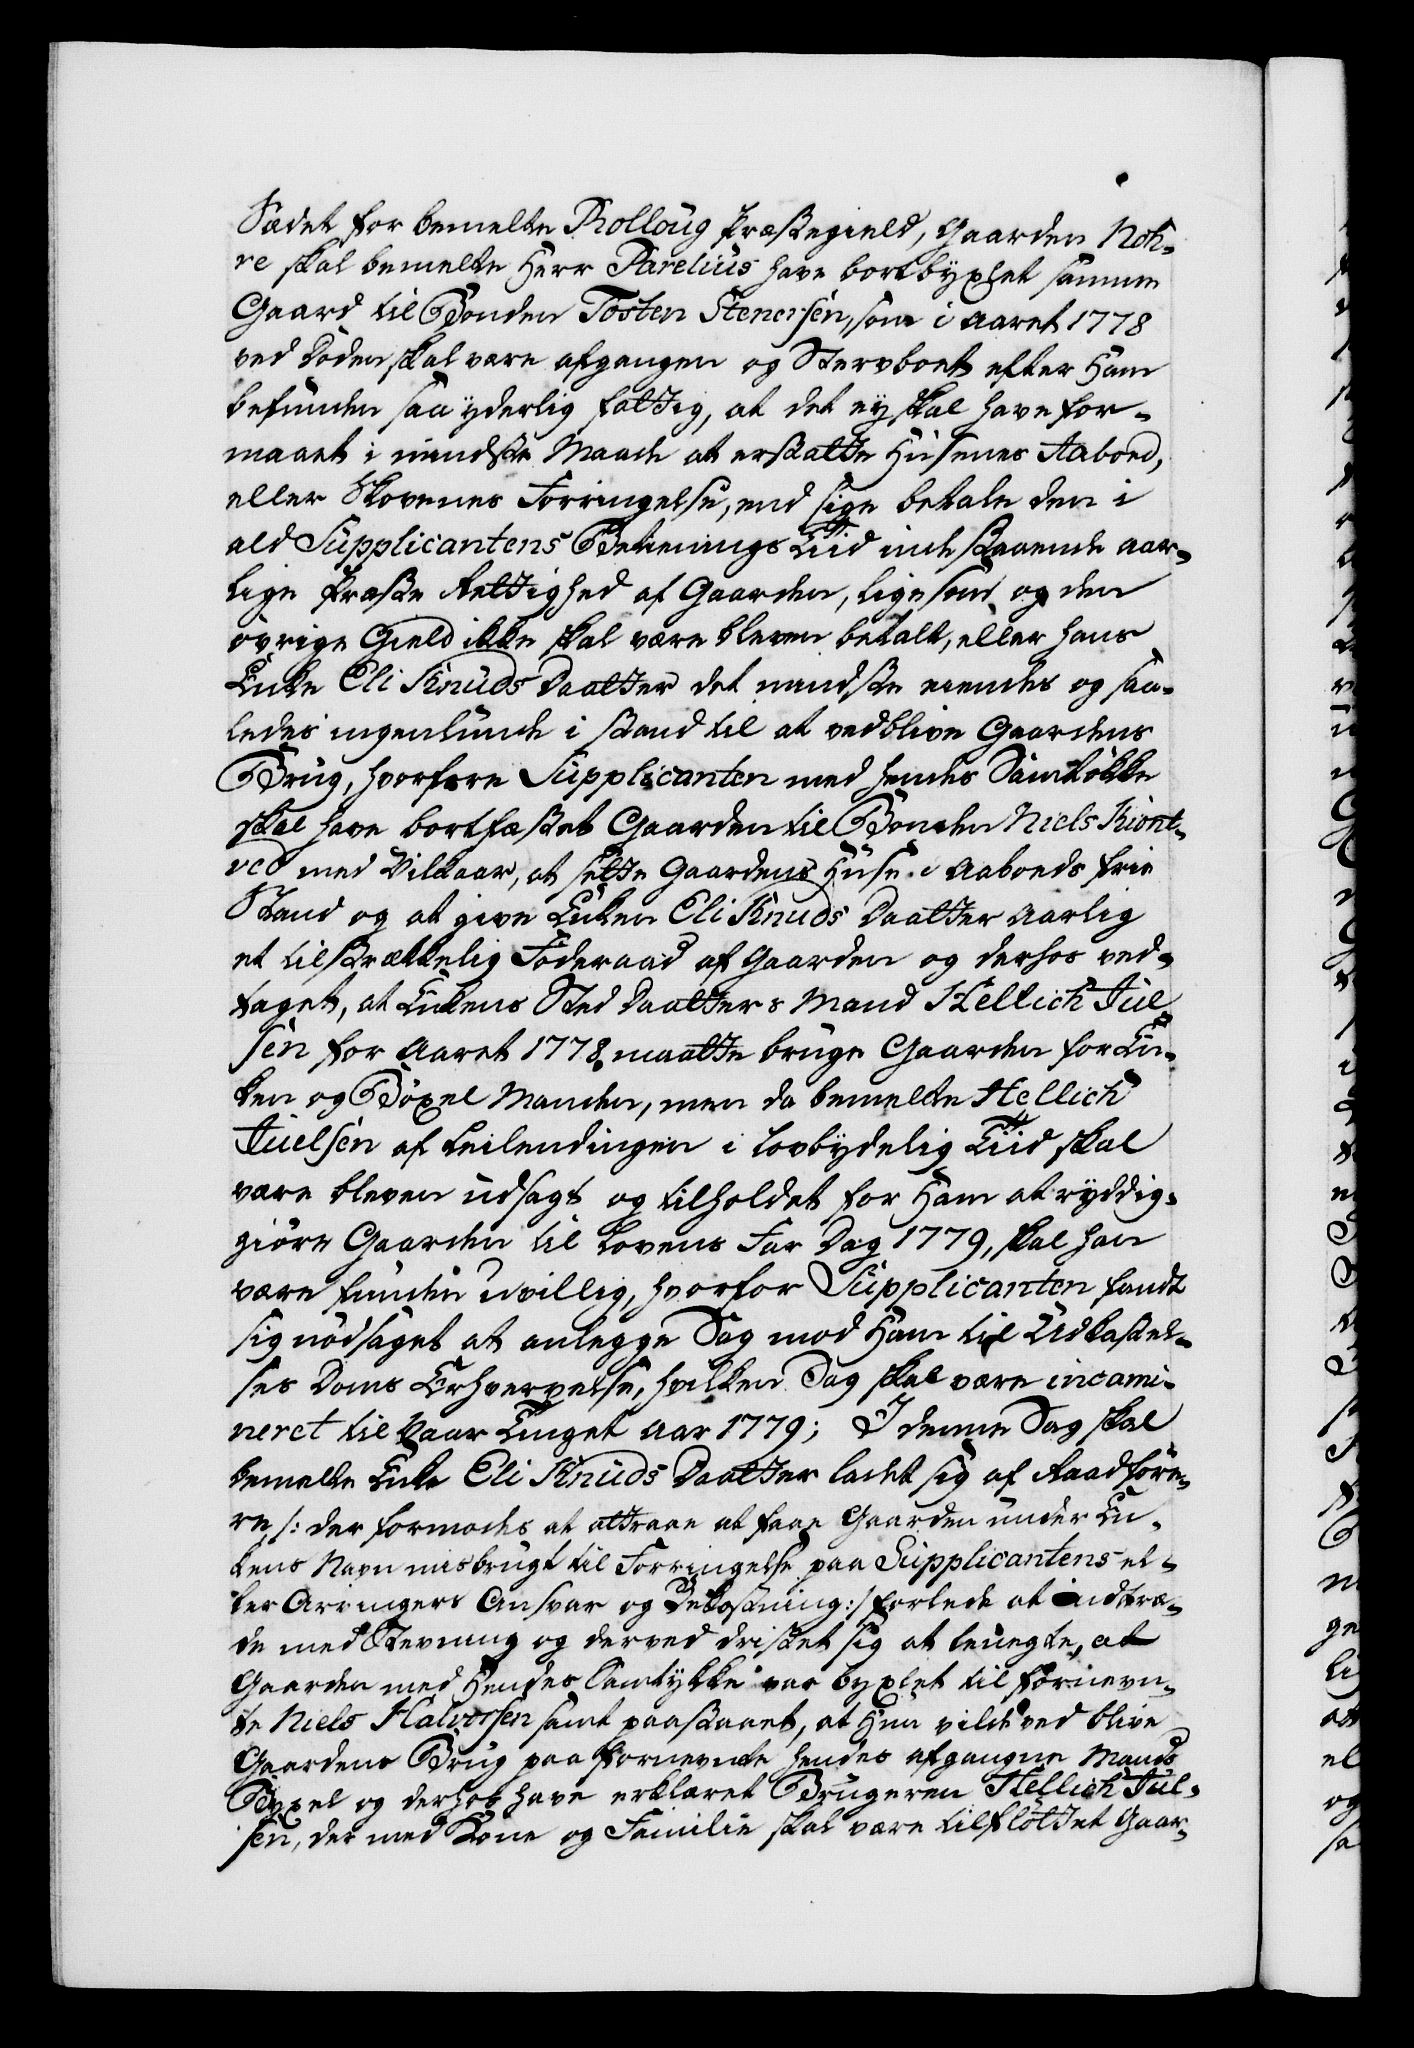 Sædet for bemelte Rolloug Præstegield, Gaarden Noh-
re skal bemelte Herr Parelius have bortbyxlet samme
Gaard til Bonden Tosten Stenersen, som i Aaret 1778
ved Døden skal være afgangen og Stervboet efter Ham
befunden saa yderlig fattig, at det ey skal have for-
maaet i mindste Maade at erstatte Husenes Aaboed,
eller Skovenes Forringelse, end sige betale den i
ald Supplicantens Betienings Tiid indestaaende aar-
lige Præste Rettighed af Gaarden, ligesom og den
øvrige Gield ikke skal være bleven betalt, eller hans
Enke Eli Knuds Daatter det mindste eiendes og saa-
ledes ingenlunde i stand til at vedblive Gaardens
Brug, hvorfore Supplicanten med hendes Samtøkke
skal have bortfæstet Gaarden til Bonden Niels Kiont-
ved med Vilkaar, at sette Gaardens Huse i Aaboeds frie
Stand og at give Enken Eli Knuds Daatter Aarlig
et tilstrækkelig Føderaad af Gaarden og derhos ved-
taget, at Enkens Sted Daatters Mand Hellich Juel-
sen for Aaret 1778 maatte bruge Gaarden for En-
ken og Bøxel Manden, men da bemelte Hellich
Juelsen af Leilendingen i lovbydelig Tiid skal
være bleven udsagt og tilholdet for Ham at ryddig-
giøre Gaarden til Lovens Far Dag 1779, skal han
være funden uvillig, hvorfor Supplicanten fandt
sig nødsaget at anlegge Sag mod Ham til Udkastel-
ses Doms Erhvervelse, hvilken Sag skal være incami-
neret til Vaar Tinget Aar 1779; I denne Sag skal
bemelte Enke Eli Knuds Daatter ladet sig af Raadføre-
re /: der formodes at attraae at faae Gaarden under En-
kens Navn misbrugt til Forringelse paa Supplicantens el-
ler Arvingers Ansvar og Bekostning :/ forlede at indtræ-
de med Stevning og derved dristet sig at benegte, at
Gaarden med Hendes Samtykke var byxlet til fornevn-
te Niels Halvorsen samt paastaaet, at Hun vilde ved blive
Gaardens Brug paa fornevnte hendes afgangne Mands
Byxel og derhos have erklæret Brugeren Hellich Juel-
sen, der med Kone og Familie skal være tilfløttet Gaar-